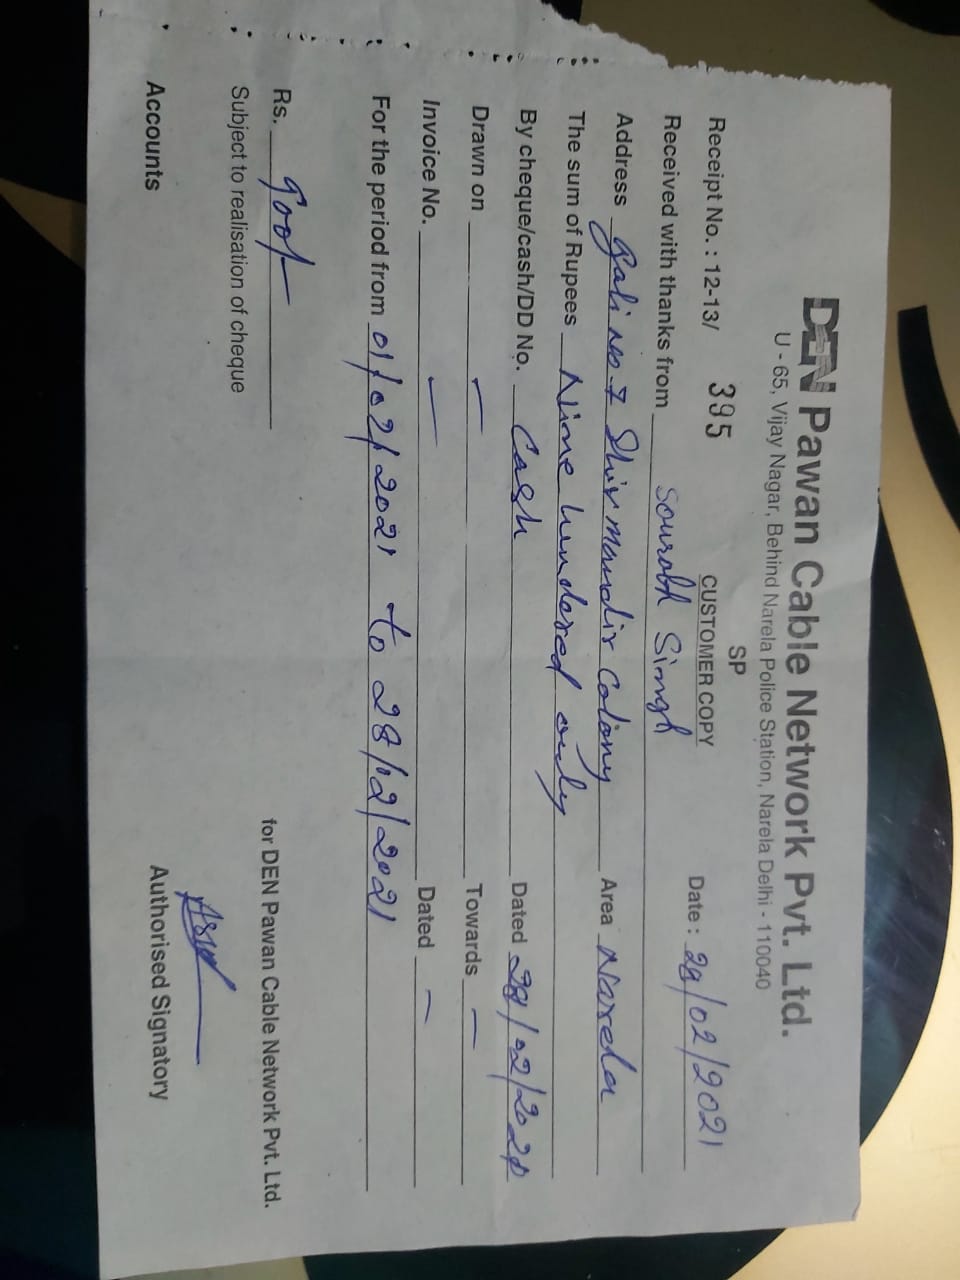 DEN Pawan Cable Network Pvt. Ltd.
U - 65, Vijay Nagar, Behind Narela Police Station, Narela Delhi - 110040
SP
Receipt No. : 12-13/ 395 CUSTOMER COPY Date : 29/02/2021
Received with thanks from Sourabh Singh
Address Gali No 7 Shiv Mandir Colony Area Narela
The sum of Rupees Nine hundered only
By cheque/cash/DD No. Cash Dated 28/02/2021
Drawn on — Towards —
Invoice No. — Dated —
For the period from 01/02/2021 to 28/12/2021
Rs. 900/-
Subject to realisation of cheque
for DEN Pawan Cable Network Pvt. Ltd.
Accounts Authorised Signatory